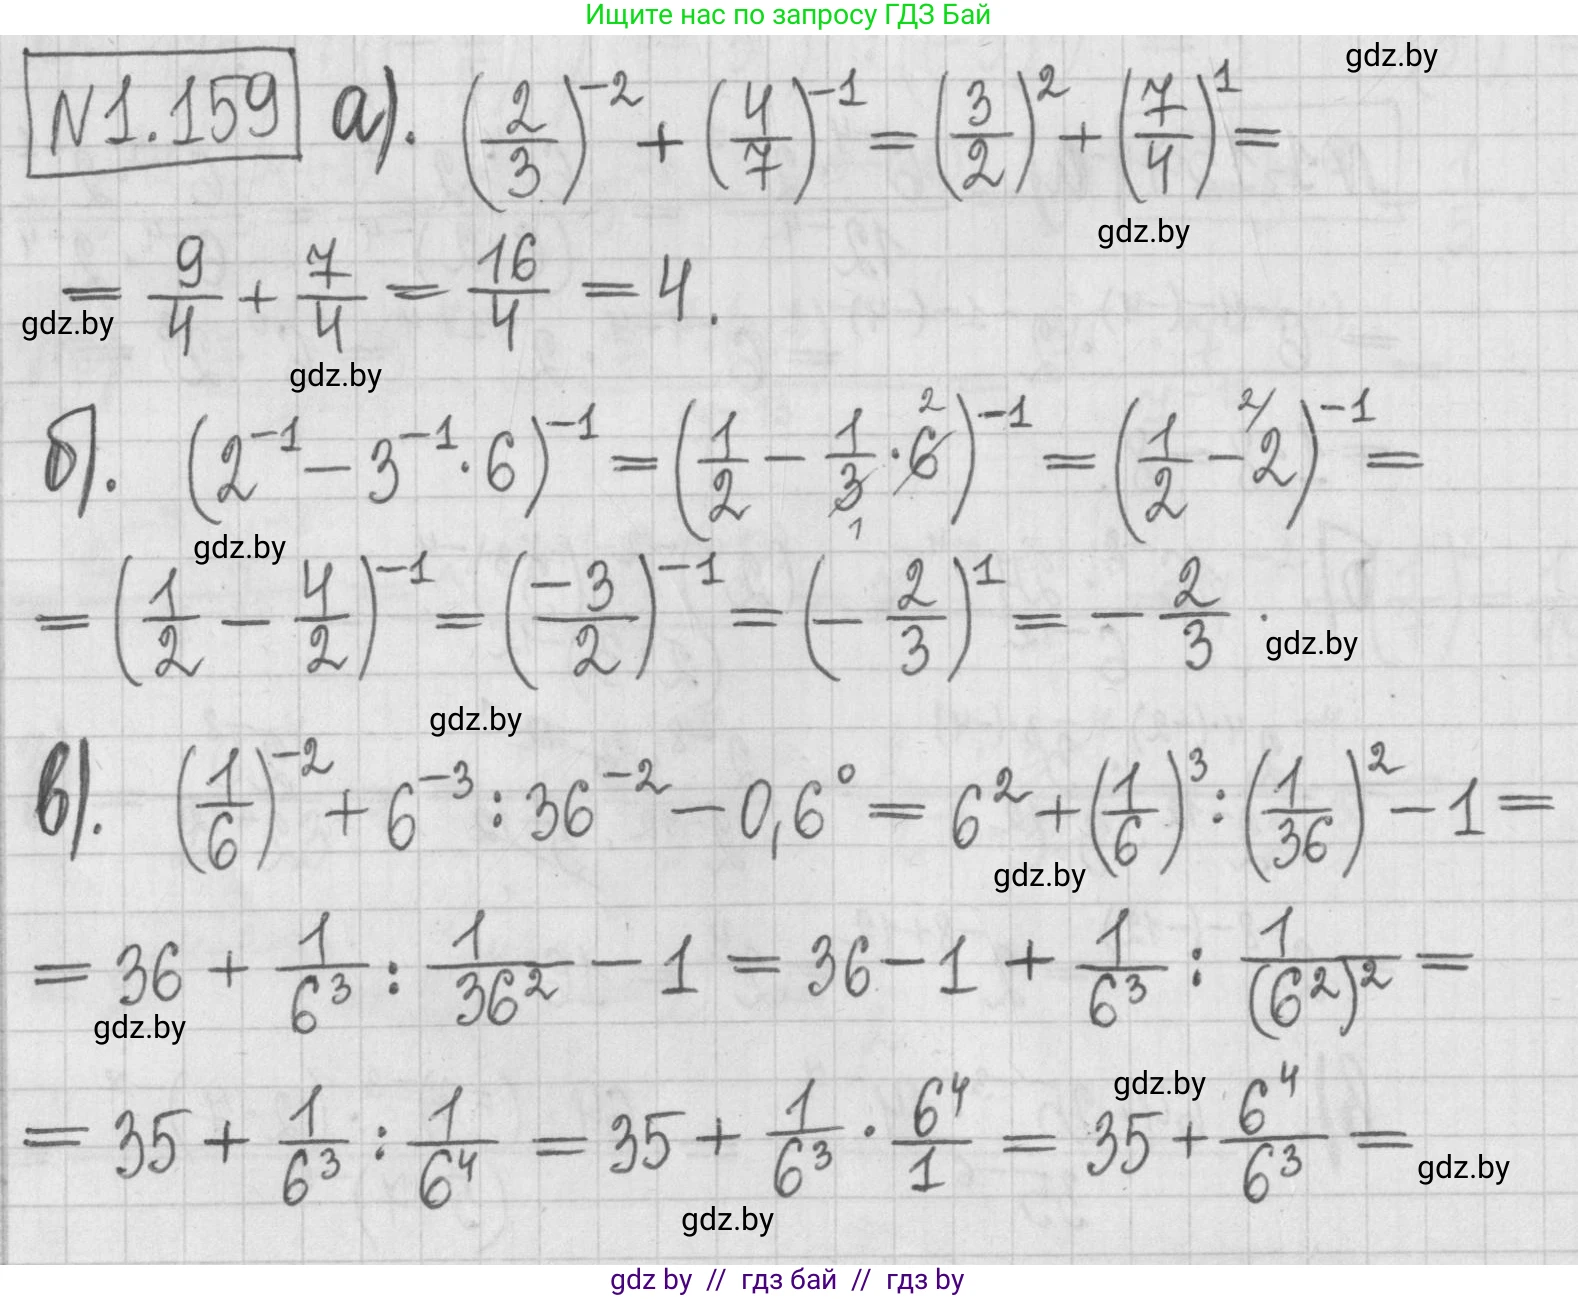 Ищите нас по запросу ГДЗ Бай
gdz.by
N1.159 а). (2/3)^-2 + (4/7)^-1 = (3/2)^2 + (7/4)^1 =
gdz.by
= 9/4 + 7/4 = 16/4 = 4.
gdz.by
gdz.by
б). (2^-1 - 3^-1 · 6)^-1 = (1/2 - 1/3 · 6)^-1 = (1/2 - 2)^-1 =
gdz.by
= (1/2 - 4/2)^-1 = (-3/2)^-1 = (-2/3)^1 = -2/3.
gdz.by
gdz.by
в). (1/6)^-2 + 6^-3 : 36^-2 - 0,6^0 = 6^2 + (1/6)^3 : (1/36)^2 - 1 =
gdz.by
= 36 + 1/6^3 : 1/36^2 - 1 = 36 - 1 + 1/6^3 : 1/(6^2)^2 =
gdz.by
gdz.by
= 35 + 1/6^3 : 1/6^4 = 35 + 1/6^3 · 6^4/1 = 35 + 6^4/6^3 =
gdz.by
gdz.by
gdz by // гдз бай // гдз by